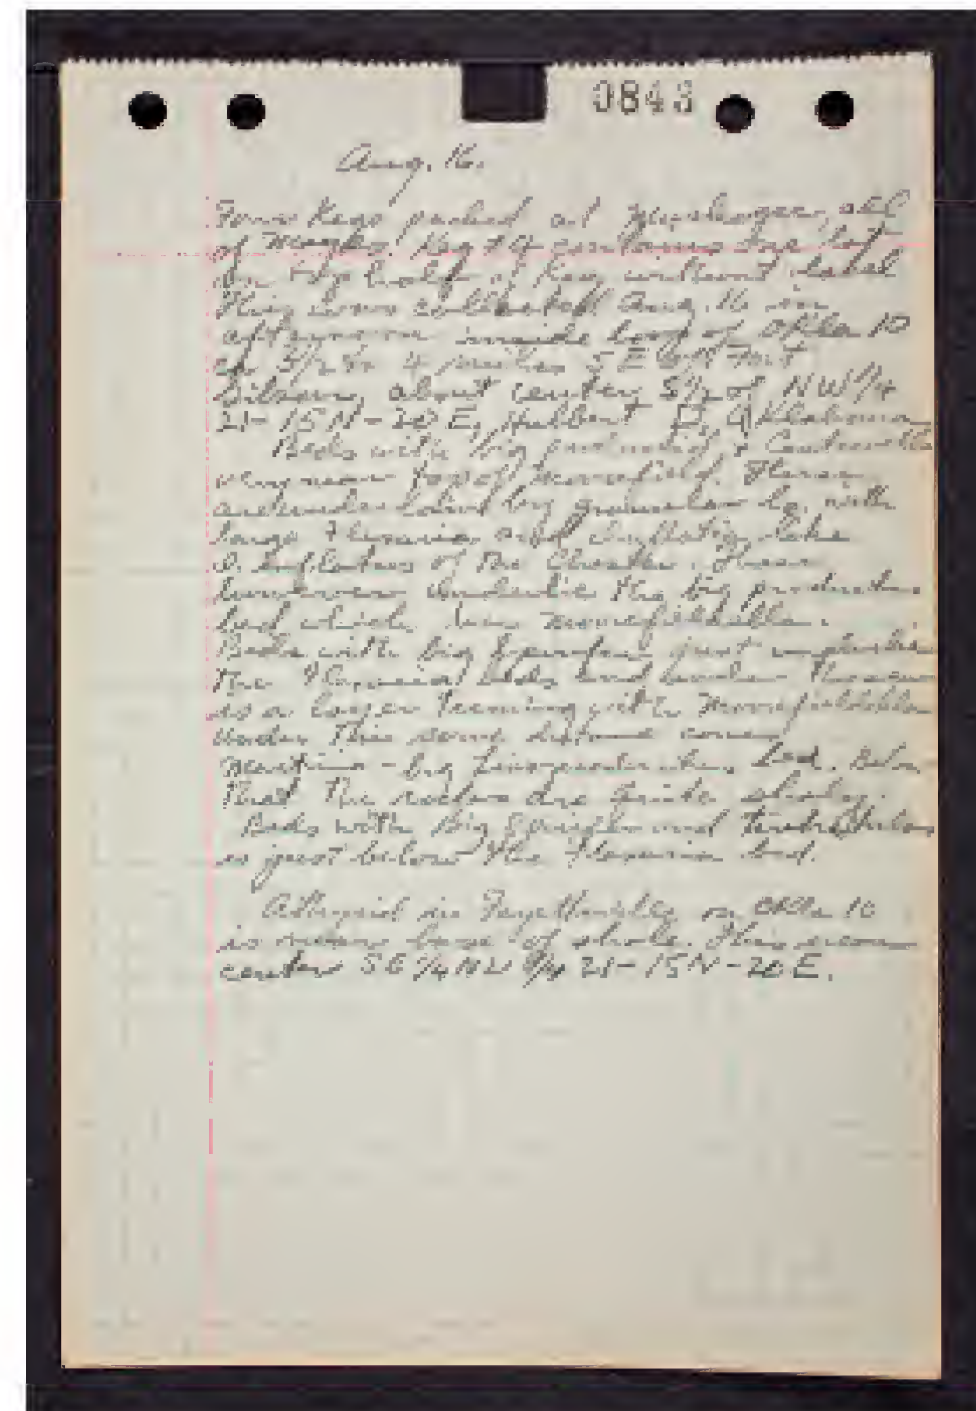 0843
Aug. 16.
Four Kegs packed at Muskogee, all
of Mayes. Keg #4 contains one lot
on top half of Keg without label
This was collected Aug. 16 in
afternoon inside loop of Okla 10
on 3 1/2 to 4 miles S E of Fort
Gibson, about center S 1/2 of NW 1/4
21-15N-20E, Hulbert Q, Oklahoma
Beds with big productid &
very near top of Moorefield. These
are underlain by granular ls. with
large Flexaria and like
D. inflatus of the Chester. These
however underlie the big productus
bed which is in Moorefieldella.
Beds with big Spirifer just
the Flexaria beds and
is a layer teeming with Moorefieldella
Under this some distance comes
Martinia - big bed. Below
that the rocks are quite shaly.
Beds with Big Spirifer and
is just below the Flexaria bed.
Athyrid in Fayetteville on Okla 10
is near base of shale. This
center SE 1/4 NW 1/4 21-15N-20E.